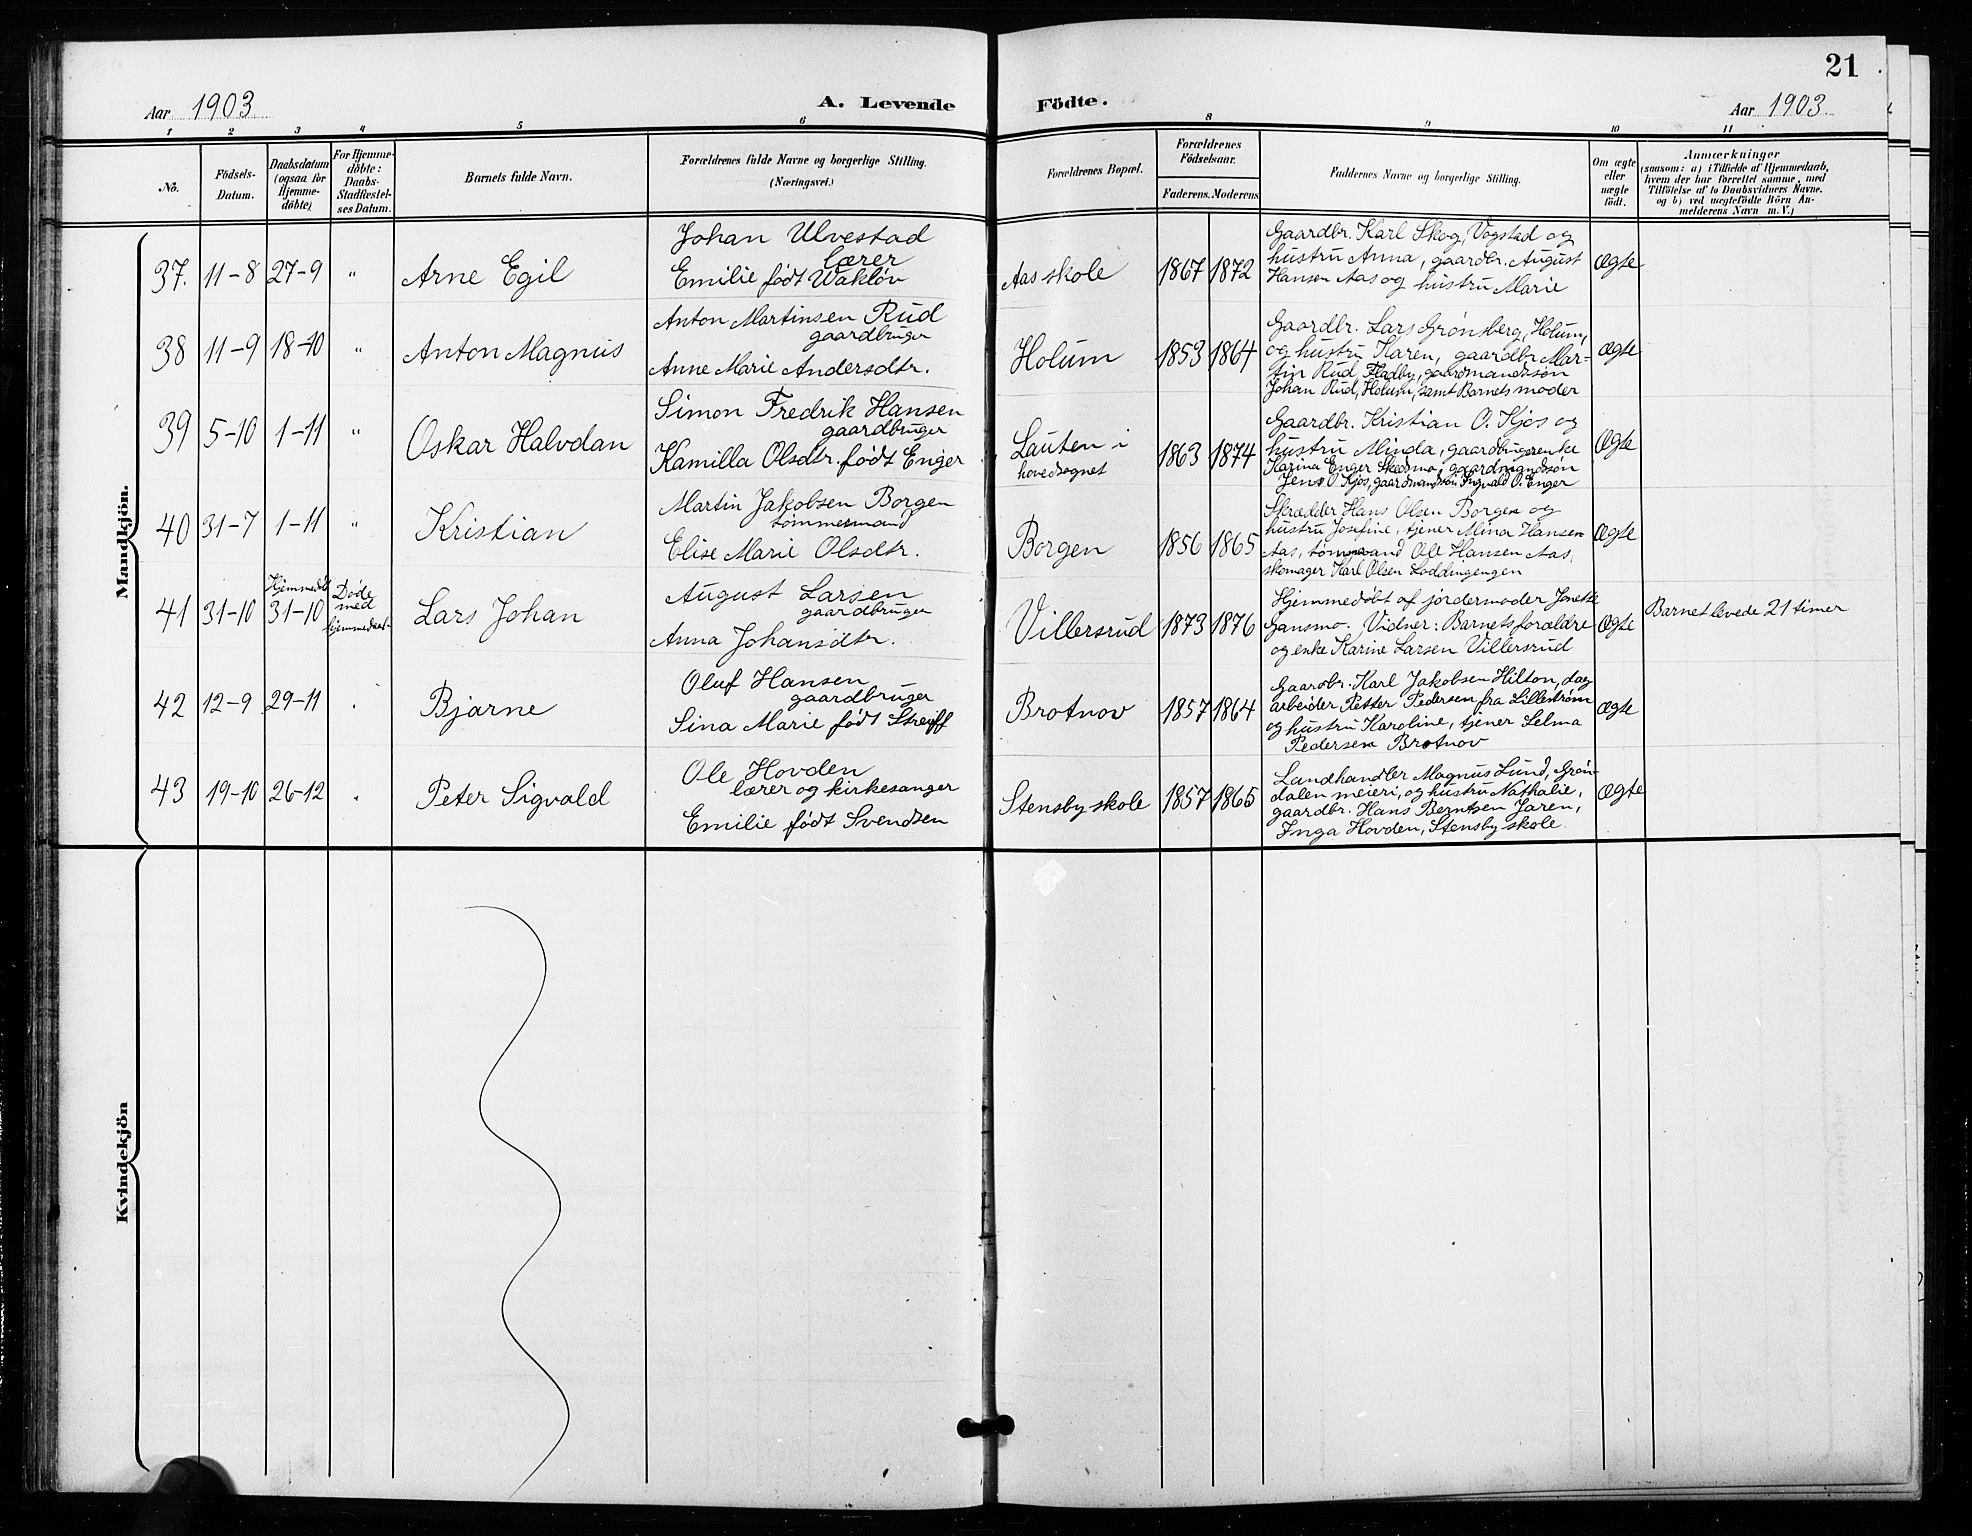 21
Aar 1903
A. Levende Födte.
Aar 1903
1 2 3 4 5 6 8 9 10 11
No.
Födsels-
Datum.
Daabsdatum
(ogsaa for
Hjemme-
döbte)
For Hjemme-
döbte:
Daabs-
Stadfæstel-
ses Datum.
Barnets fulde Navn.
Forældrenes fulde Navne og borgerlige Stilling.
(Næringsvei.)
Forældrenes Bopæl.
Forældrenes
Födselsaar.
Faderens. Moderens
Faddernes Navne og borgerlige Stilling.
Om ægte
eller
uægte
født.
Anmærkninger
(saasom: a) i Tilfælde af Hjemmedaab,
hvem der har forrettet samme, med
Tilföielse af to Daabsvidners Navne.
og b) ved uægtefödte Börn An-
melderens Navn m. V.)
Mandkjön.
37. 11-8 27-9 "
Arne Egil
Johan Ulvestad
lærer
Emilie født Wakløv
Aas skole
1867 1872
Gaardbr. Karl Skog, Vogstad og
hustru Anna, gaardbr. August
Hansen Aas og hustru Marie
Ægte
38 11-9 18-10 "
Anton Magnus
Anton Martinsen Rud
gaardbruger
Anne Marie Andersdtr.
Holum
1853 1864
Gaardbr. Lars Grønsberg, Holum,
og hustru Karen, gaardbr. Mar-
tin Rud Fladby, gaardmandssøn
Johan Rud, Holum, samt Barnets moder
Ægte
39 5-10 1-11 "
Oskar Halvdan
Simon Fredrik Hansen
gaardbruger
Kamilla Olsdtr. født Enger
Lauten i
hovedsognet
1863 1874
Gaardbr. Kristian O. Kjos og
hustru Minda, gaardbrugerenke
Karina Enger Skedsmo, gaardmandssøn
Jens O Kjos, gaardmandssøn Ingvald O. Enger
Ægte
40 31-7 1-11 "
Kristian
Martin Jakobsen Borgen
tømmermand
Elise Marie Olsdtr.
Borgen
1856 1865
Skrædder Hans Olsen Borgen og
hustru Josefine, tjener Mina Hansen
Aas, tømmermand Ole Hansen Aas,
skomager Karl Olsen Loddingengen
Ægte
41 31-10
Hjemmedøbt
31-10
Døde
med
hjemmedaab-
Lars Johan
August Larsen
gaardbruger
Anna Johansdtr.
Villersrud
1873 1876
Hjemmedøbt af jordermoder Jonette
Gansmo. Vidner: Barnets forældre
og enke Karine Larsen Villersrud
Ægte
Barnet levede 21 timer
42 12-9 29-11
Bjarne
Oluf Hansen
gaardbruger
Sina Marie født Streiff
Brotnov
1857 1864
Gaardbr. Karl Jakobsen Hilton, dag-
arbeider Petter Pedersen fra Lillestrøm
og hustru Karoline, tjener Selma
Pedersen Brotnov
Ægte
43 19-10 26-12
Peter Sigvald
Ole Hovden
lærer og kirkesanger
Emilie født Svendsen
Stensby skole
1857 1865
Landhandler Magnus Lund, Grøn-
dalen meieri, og hustru Nathalie,
gaardbr. Hans Berntsen Jaren,
Inga Hovden, Stensby skole.
Ægte
Kvindekjön